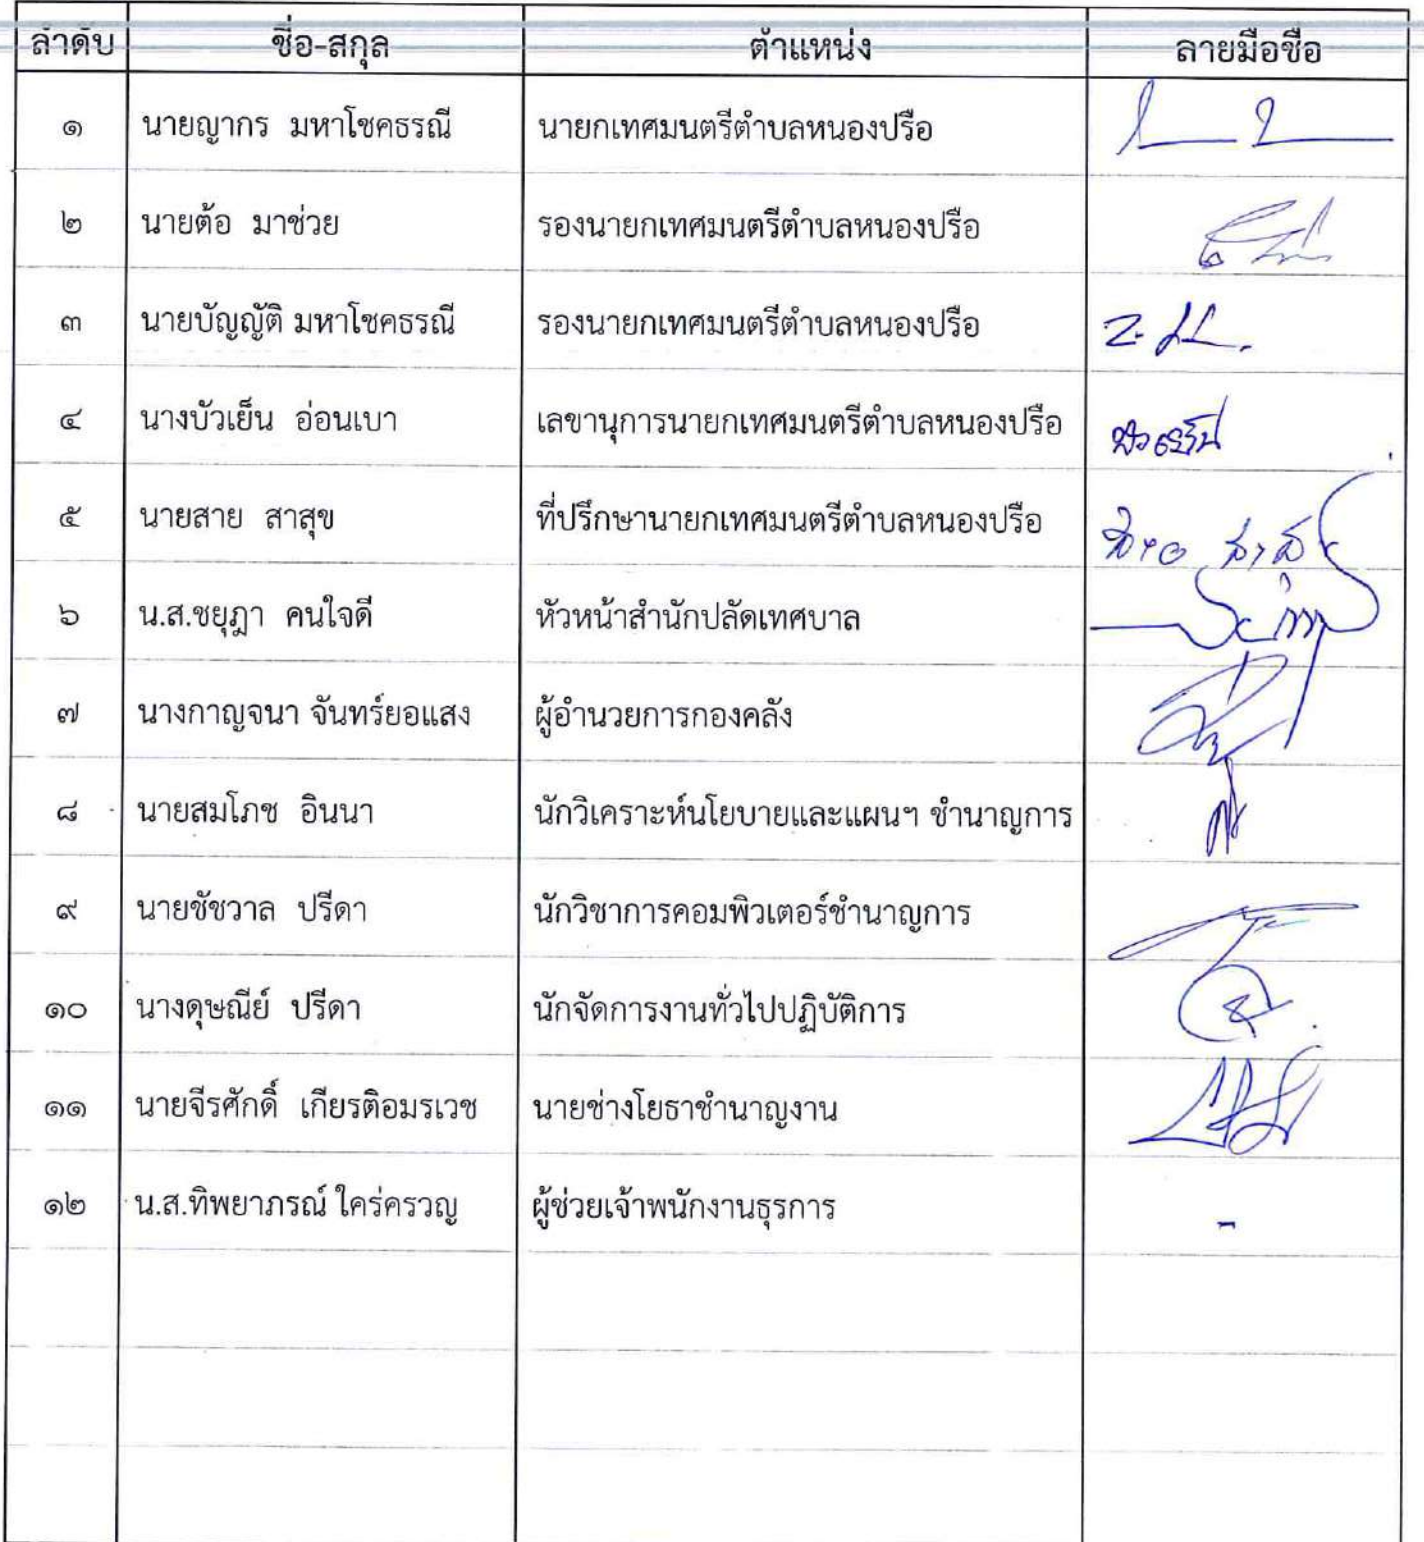 ลำดับ ชื่อ-สกุล ตำแหน่ง ลายมือชื่อ
๑ นายญากร มหาโชคธรณี นายกเทศมนตรีตำบลหนองปรือ
๒ นายต้อ มาช่วย รองนายกเทศมนตรีตำบลหนองปรือ
๓ นายบัญญัติ มหาโชคธรณี รองนายกเทศมนตรีตำบลหนองปรือ
๔ นางบัวเย็น อ่อนเบา เลขานุการนายกเทศมนตรีตำบลหนองปรือ
๕ นายสาย สาสุข ที่ปรึกษานายกเทศมนตรีตำบลหนองปรือ
๖ น.ส.ชยุฎา คนใจดี หัวหน้าสำนักปลัดเทศบาล
๗ นางกาญจนา จันทร์ยอแสง ผู้อำนวยการกองคลัง
๘ นายสมโภช อินนา นักวิเคราะห์นโยบายและแผนฯ ชำนาญการ
๙ นายชัชวาล ปรีดา นักวิชาการคอมพิวเตอร์ชำนาญการ
๑๐ นางดุษณีย์ ปรีดา นักจัดการงานทั่วไปปฏิบัติการ
๑๑ นายจีรศักดิ์ เกียรติอมรเวช นายช่างโยธาชำนาญงาน
๑๒ น.ส.ทิพยาภรณ์ ใคร่ครวญ ผู้ช่วยเจ้าพนักงานธุรการ -